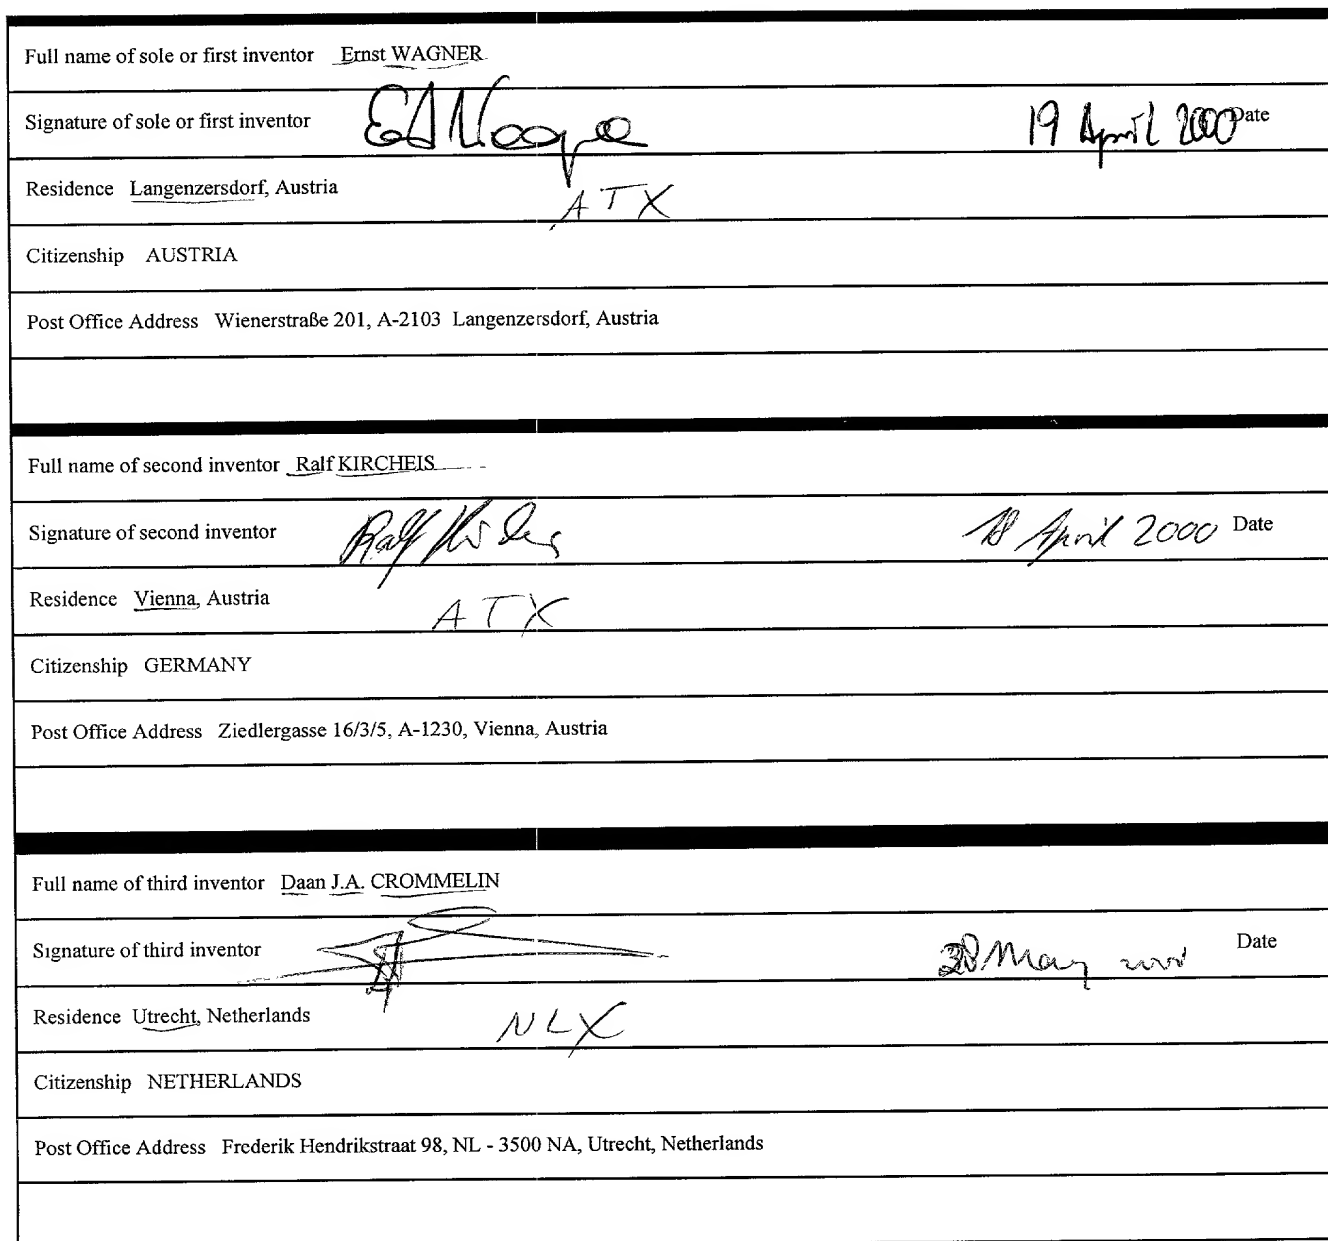 Full name of sole or first inventor Ernst WAGNER
Signature of sole or first inventor 19 April 2000 Date
Residence Langenzersdorf, Austria ATX
Citizenship AUSTRIA
Post Office Address Wienerstraße 201, A-2103 Langenzersdorf, Austria
Full name of second inventor Ralf KIRCHEIS
Signature of second inventor 18 April 2000 Date
Residence Vienna, Austria ATX
Citizenship GERMANY
Post Office Address Ziedlergasse 16/3/5, A-1230, Vienna, Austria
Full name of third inventor Daan J.A. CROMMELIN
Signature of third inventor May Date
Residence Utrecht, Netherlands NLX
Citizenship NETHERLANDS
Post Office Address Frederik Hendrikstraat 98, NL - 3500 NA, Utrecht, Netherlands